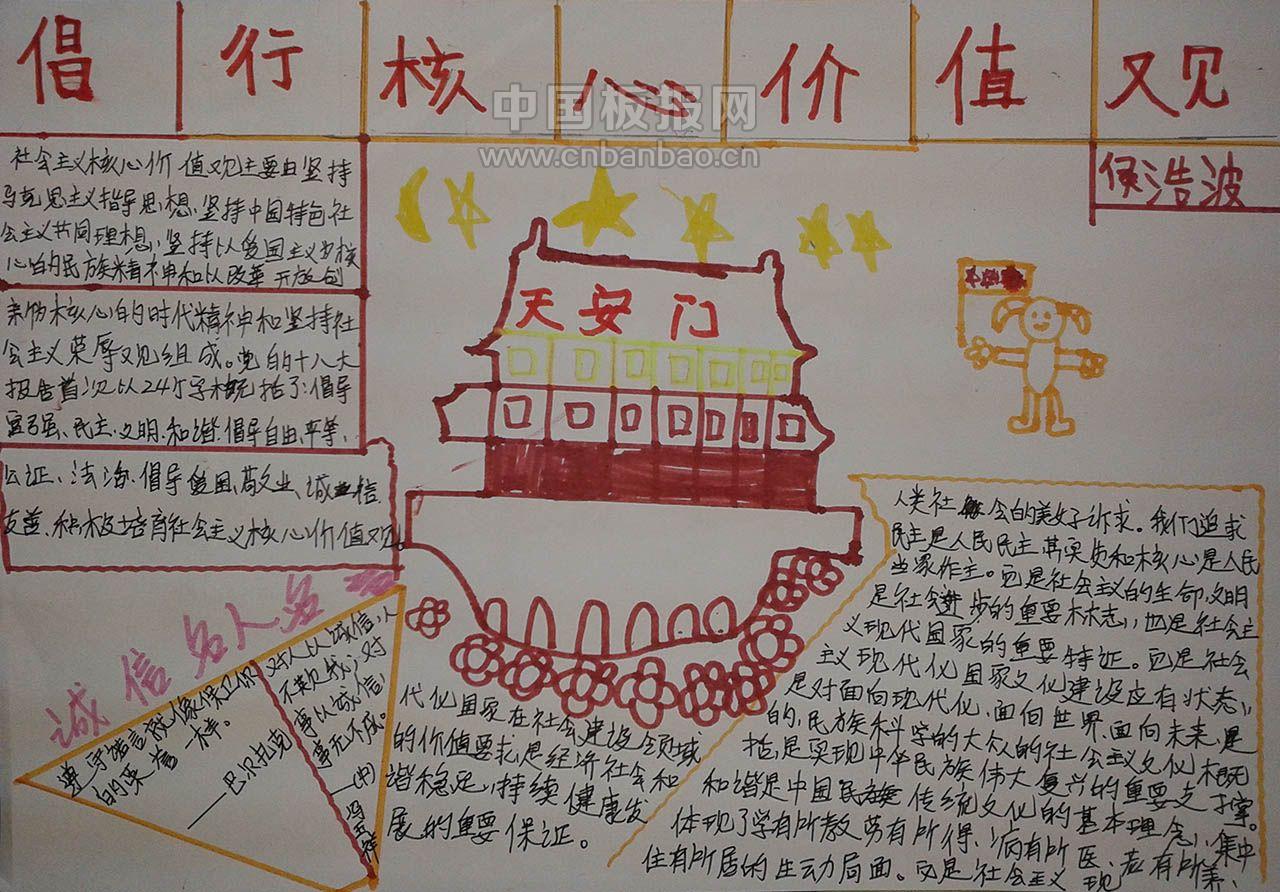 倡行核心价值观
中国板报网
www.cnbanbao.cn
侯浩波
社会主义核心价值观主要由坚持
马克思主义指导思想、坚持中国特色社
会主义共同理想、坚持以爱国主义为核
心的民族精神和以改革开放创
亲的核心的时代精神和坚持社
会主义荣辱观组成。党的十八大
报告首次以24个字概括了:倡导
富强、民主、文明、和谐、倡导自由、平等、
公证、法治、倡导爱国、敬业、诚信、
友善、积极培育社会主义核心价值观。
天安门
诚信名人名
遵守诺言就像保卫你
的荣誉一样。
——巴尔扎克
对人以诚信,人
不欺我;对
事以诚信,
事无不成。
——(中)冯玉祥
人类社会的美好诉求。我们追求
民主是人民民主其实质和核心是人民
当家作主。它是社会主义的生命,文明
是社会进步的重要标志,也是社会主
义现代国家的重要特证。它是社会
主义现代化国家文化建设应有状态,
是对面向现代化、面向世界、面向未来,是
的,民族科学的大众的社会主义文化概
括,是实现中华民族伟大复兴的重要支撑。
和谐是中国民族传统文化的基本理念,集中
体现了学有所教、劳有所得、病有所医、老有所养、
住有所居的生动局面。它是社会主义现
代化国家在社会建设领域
的价值要求,是经济社会和
谐稳定,持续健康发
展的重要保证。